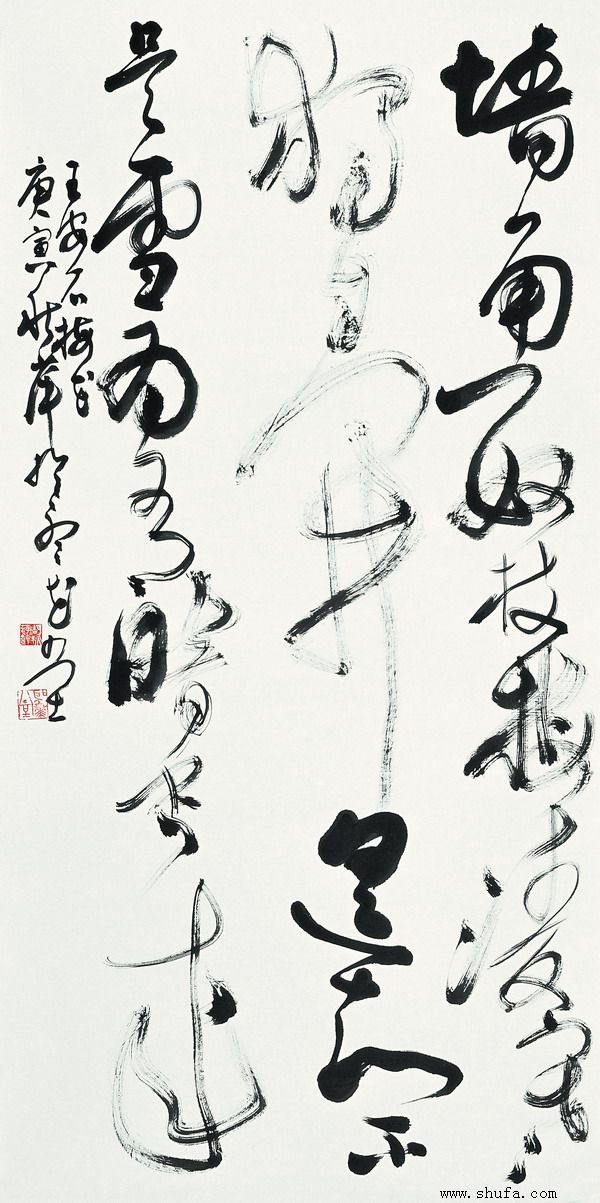 墙角数枝梅凌寒
独自開遥知不
是雪为有暗香来
王安石梅花
庚寅秋
www.shufa.com